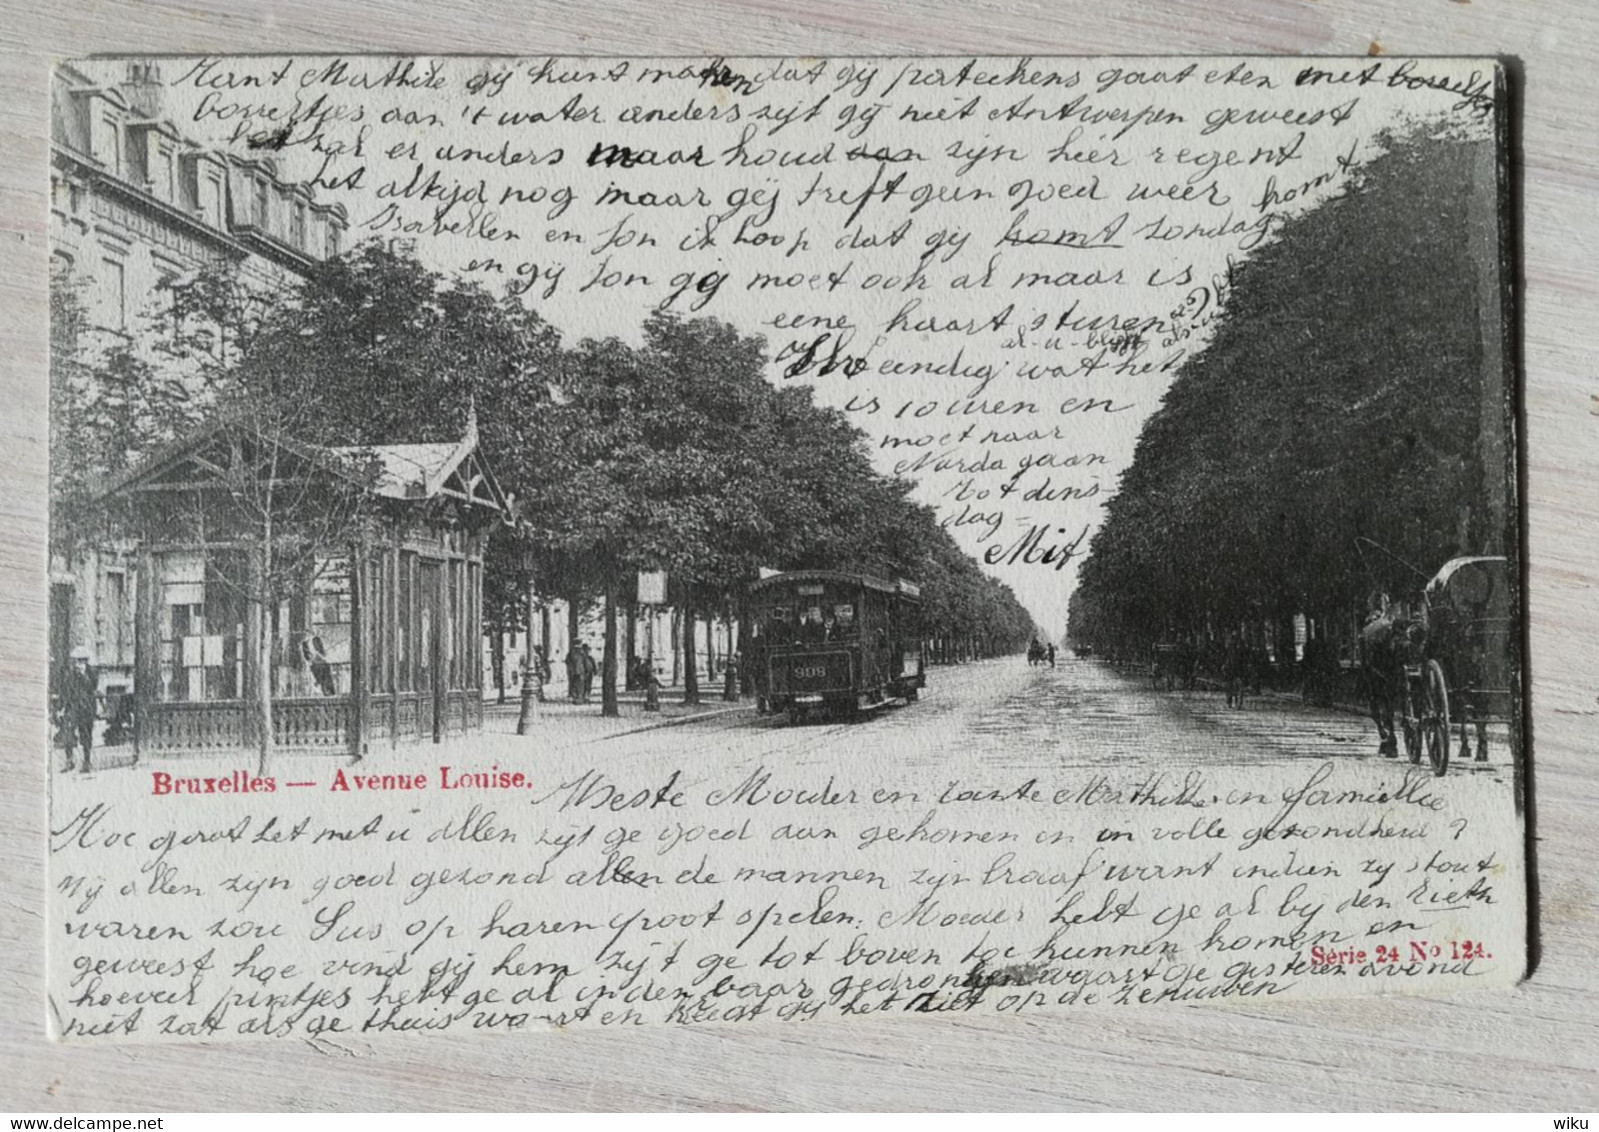 Tant Mathilde gij kunt maken dat gij partechens gaat eten met
borrertjes aan 't water anders zijt gij niet Antwerpen geweest
het zal er anders maar houd aan zijn hier regent
het altijd nog maar gij treft geen goed weer komt
Isabellen en Jon ik hoop dat gij komt zondag
en gij Jon gij moet ook al maar is
eene kaart sturen
al-u-blijft als-u-bl
eendig wat het
is 10 uren en
moet naar
Narda gaan
tot dens-
dag =
Mit
908
Bruxelles — Avenue Louise.
Beste Moeder en tante Mathilde en famiellie
Hoe gaat het met u allen zijt ge goed aan gekomen en in volle gezondheid ?
Wij allen zijn goed gezond allen de mannen zijn braaf want indien zij stout
waren zou Sus op haren poot spelen. Moeder hebt ge al bij den Rieth
geweest hoe vind gij hem zijt ge tot boven toe kunnen komen en
Série 24 No 124.
hoeveel pintjes hebt ge al in den baar gedronken waart ge gisteren avond
niet zat als ge thuis waart en kreegt gij het niet op de zenuwen
wiku